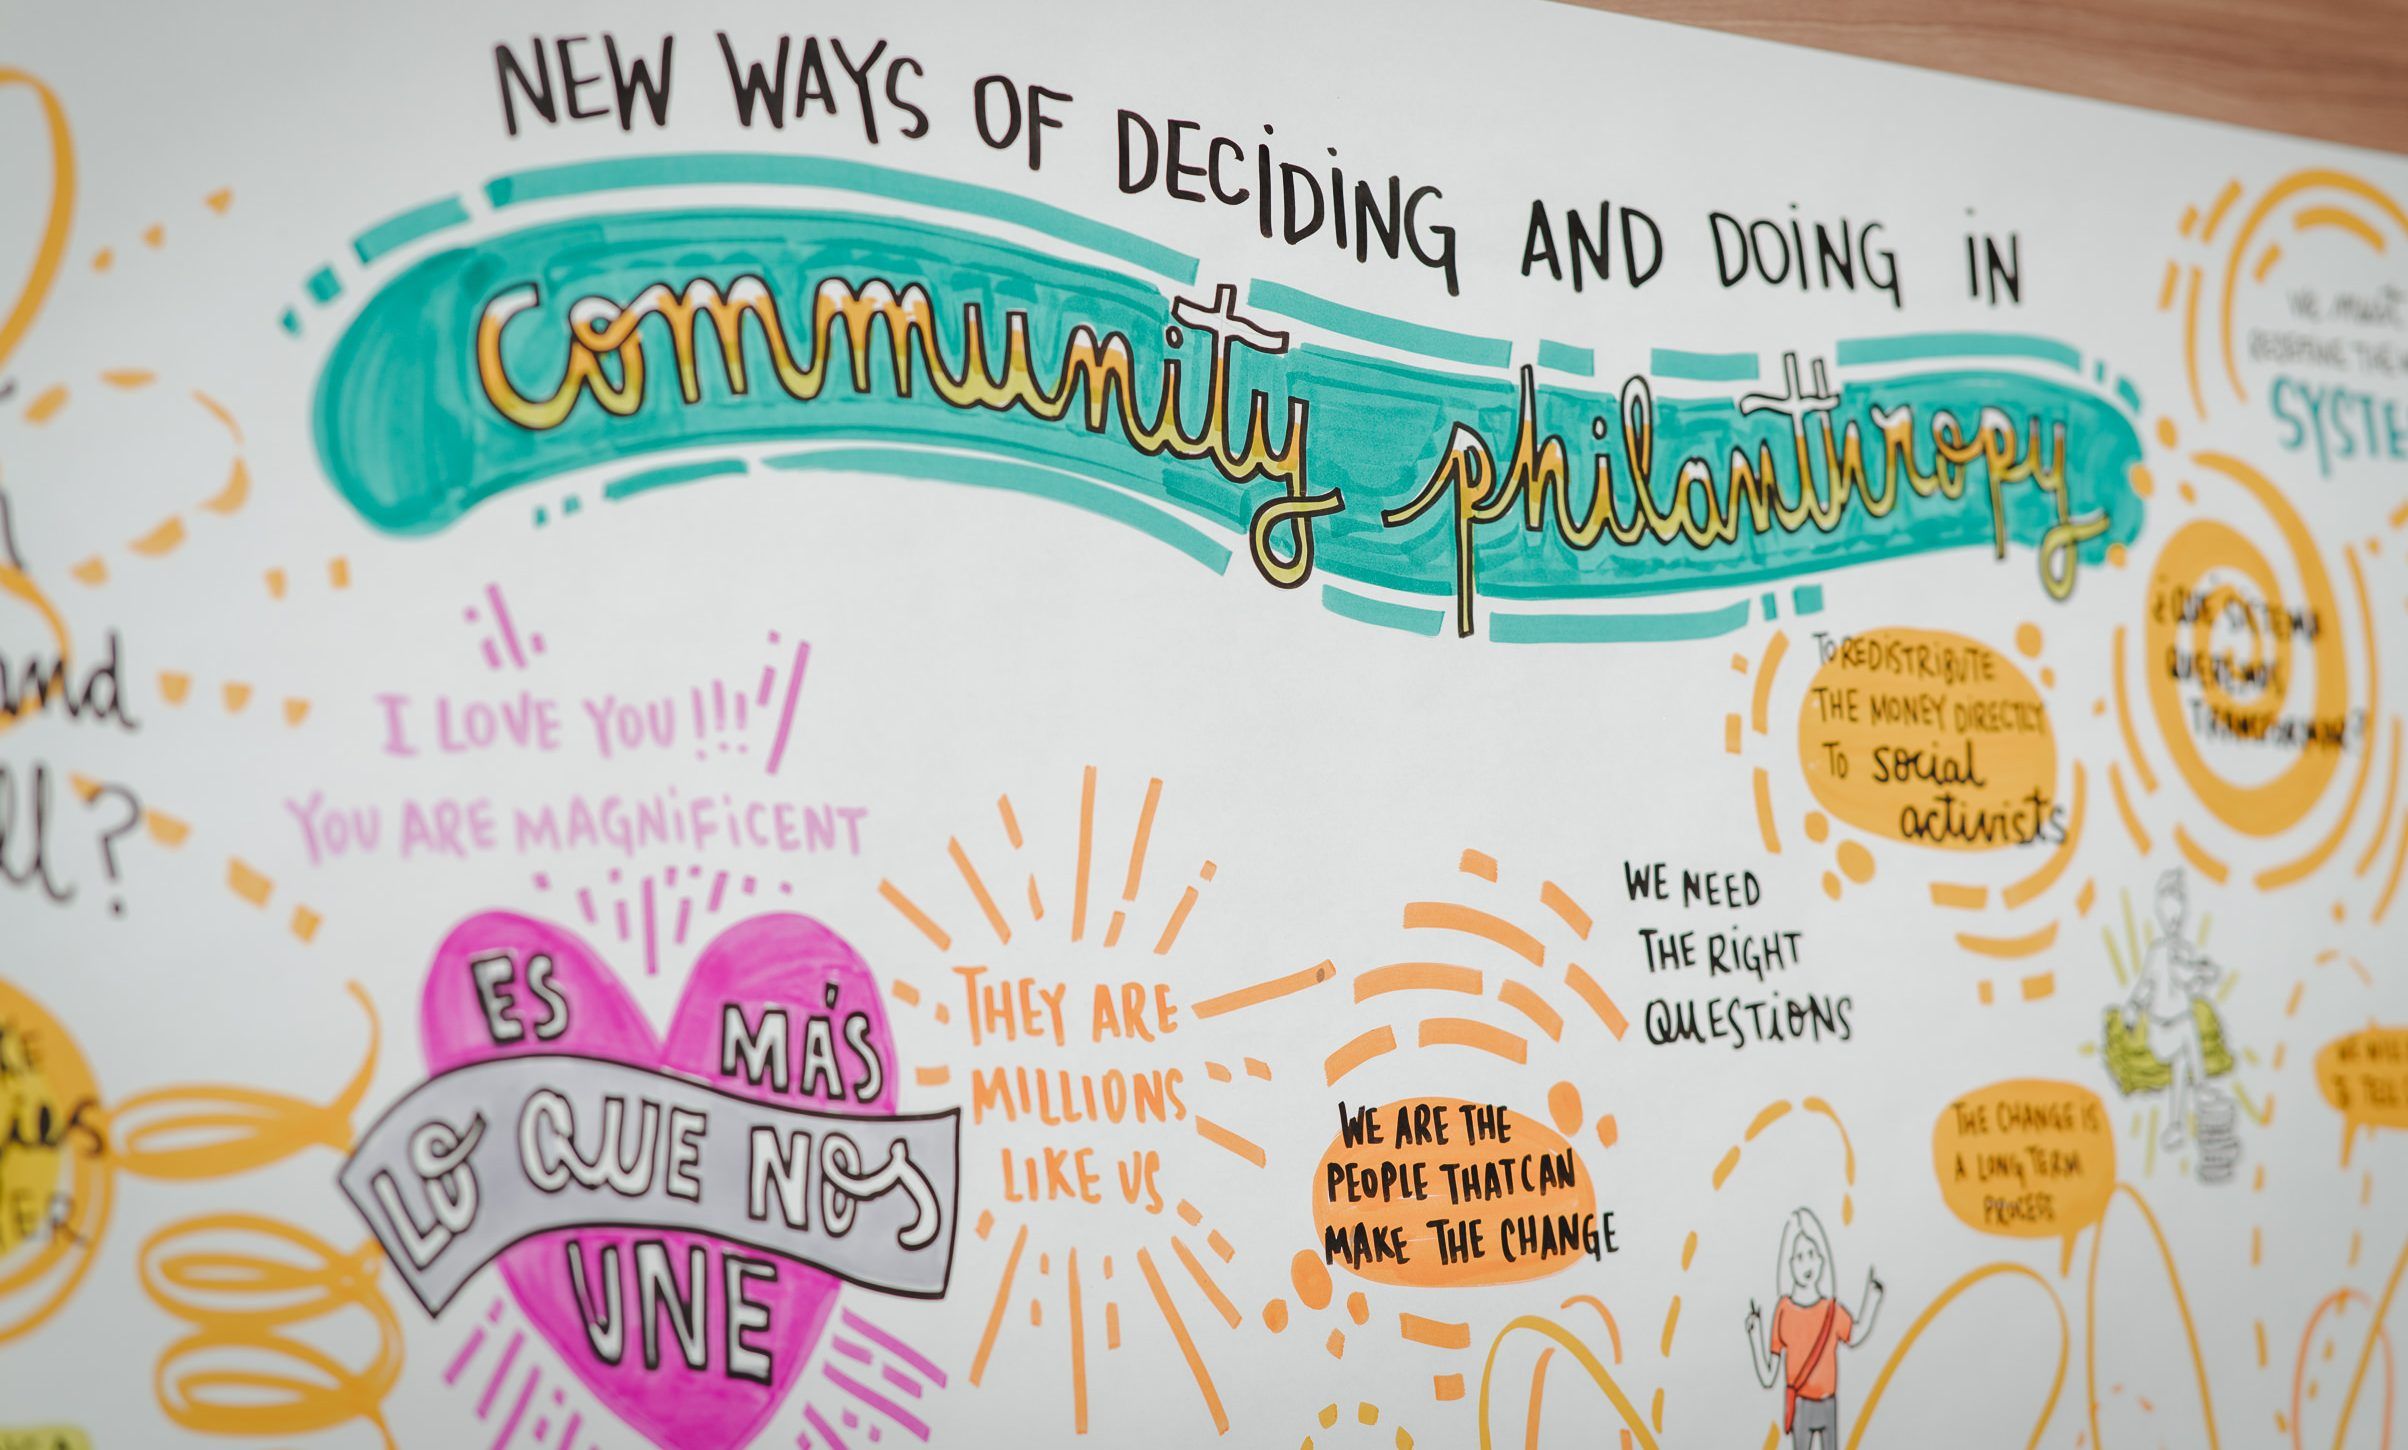 NEW WAYS OF DECIDING AND DOING IN
community philanthropy
I LOVE YOU!!!
YOU ARE MAGNIFICENT
ES MÁS
LO QUE NOS
UNE
THEY ARE
MILLIONS
LIKE US
WE ARE THE
PEOPLE THAT CAN
MAKE THE CHANGE
WE NEED
THE RIGHT
QUESTIONS
TO REDISTRIBUTE
THE MONEY DIRECTLY
TO social
activists
¿QUÉ SISTEMA
QUEREMOS
TRANSFORMAR?
THE CHANGE IS
A LONG TERM
PROCESS
we must